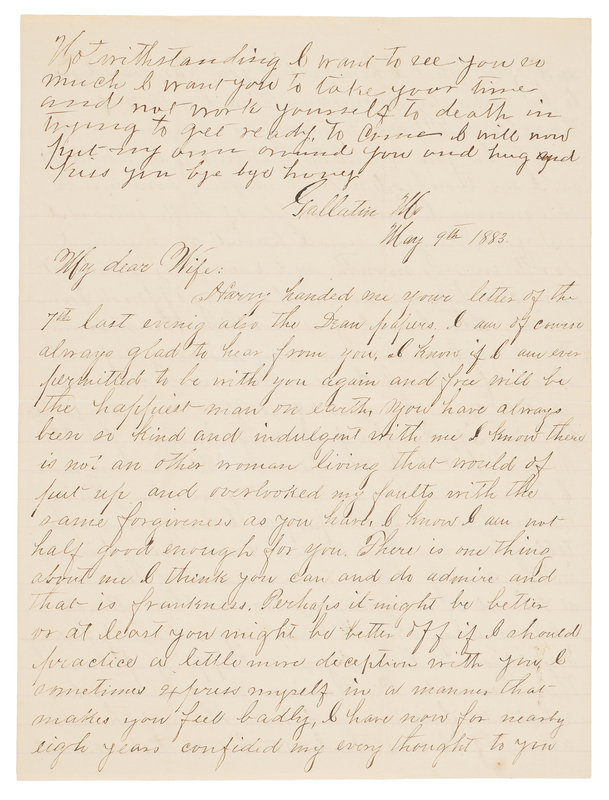 Notwithstanding I want to see you so
much I want you to take your time
and not work yourself to death in
trying to get ready, to come I will now
put my arm around you and hug and
kiss you bye bye honey
Gallatin Mo
May 9th 1883.
My dear Wife:
Harry handed me your letter of the
7th last evenig also the Dean papers. I am of course
always glad to hear from you, I know if I am ever
permitted to be with you again and free will be
the happiest man on earth, you have always
been so kind and indulgent with me I know there
is not an other woman living that would of
put up and overlooked my faults with the
same forgiveness as you have, I know I am not
half good enough for you. There is one thing
about me I think you can and do admire and
that is frankness. Perhaps it might be better
or at least you might be better off if I should
practice a little more deception with you, I
sometimes express myself in a manner that
makes you feel badly, I have now for nearly
eigh years confided my every thought to you